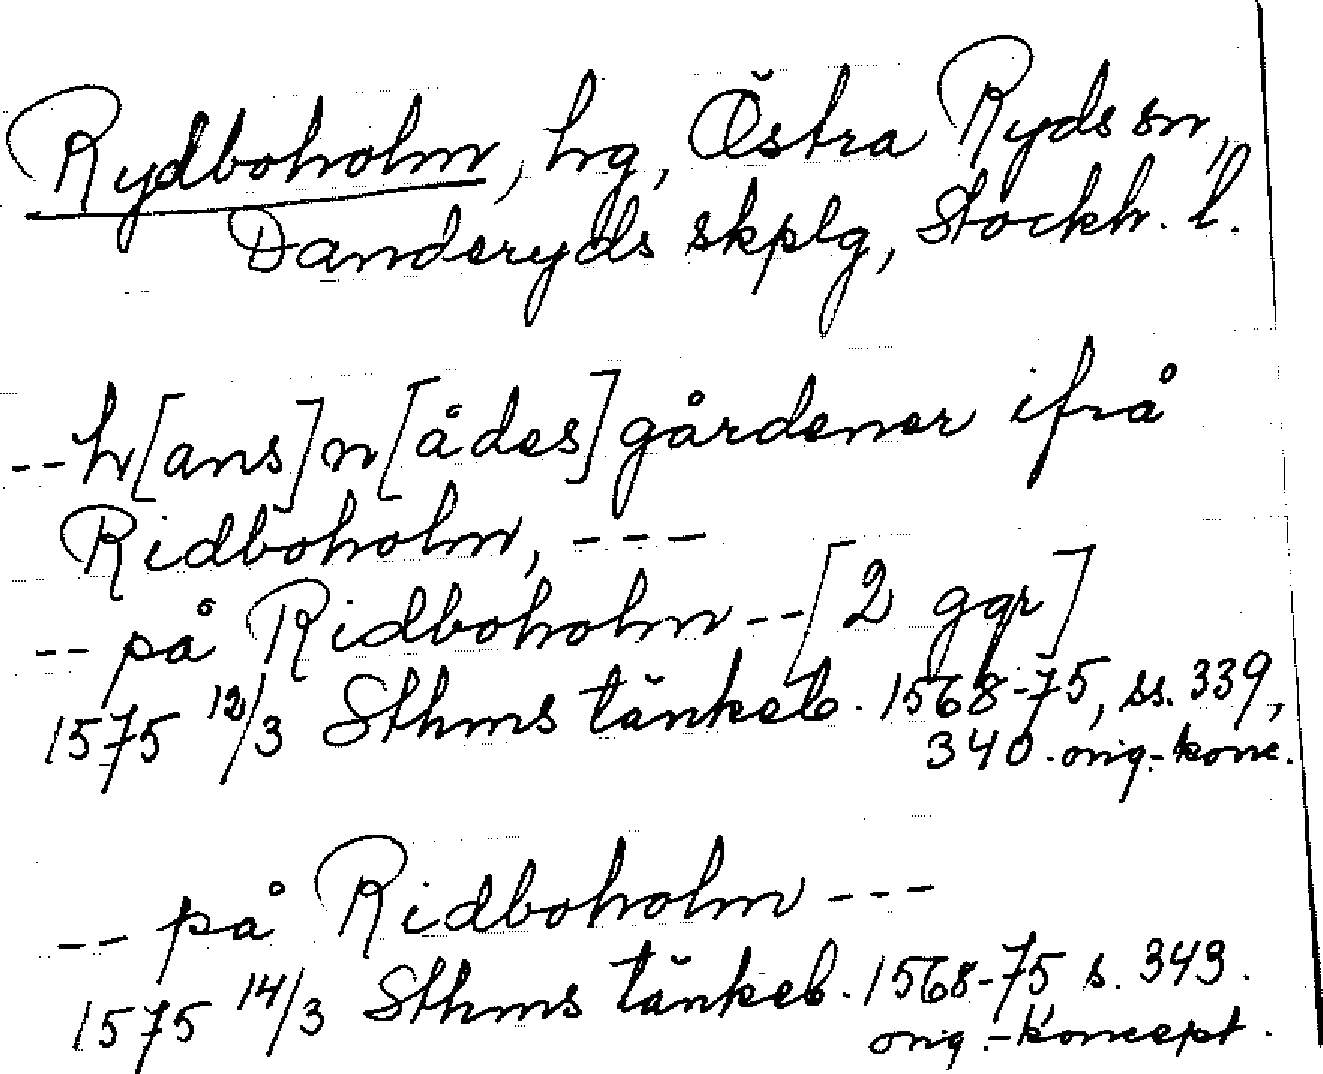 Rydboholm, hg, Östra Ryds sn,
Danderyds skplg, Stockh. l.
--h[ans] n[ådes] gårdener ifrå
Ridboholm, ---
-- på Ridboholm --[2 ggr]
1575 12/3 Sthms tänkeb. 1568-75, ss. 339,
340. orig.-konc.
-- på Ridboholm ---
1575 14/3 Sthms tänkeb. 1568-75 s. 343.
orig.-koncept.